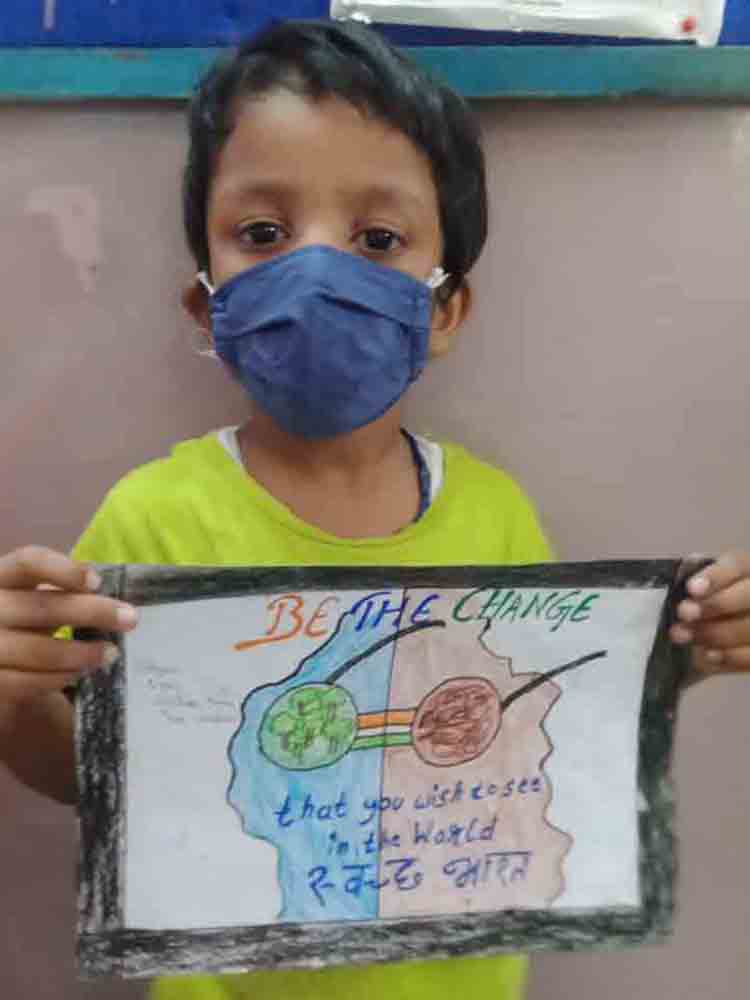 BE THE CHANGE
that you wish to see
in the World
स्वच्छ भारत